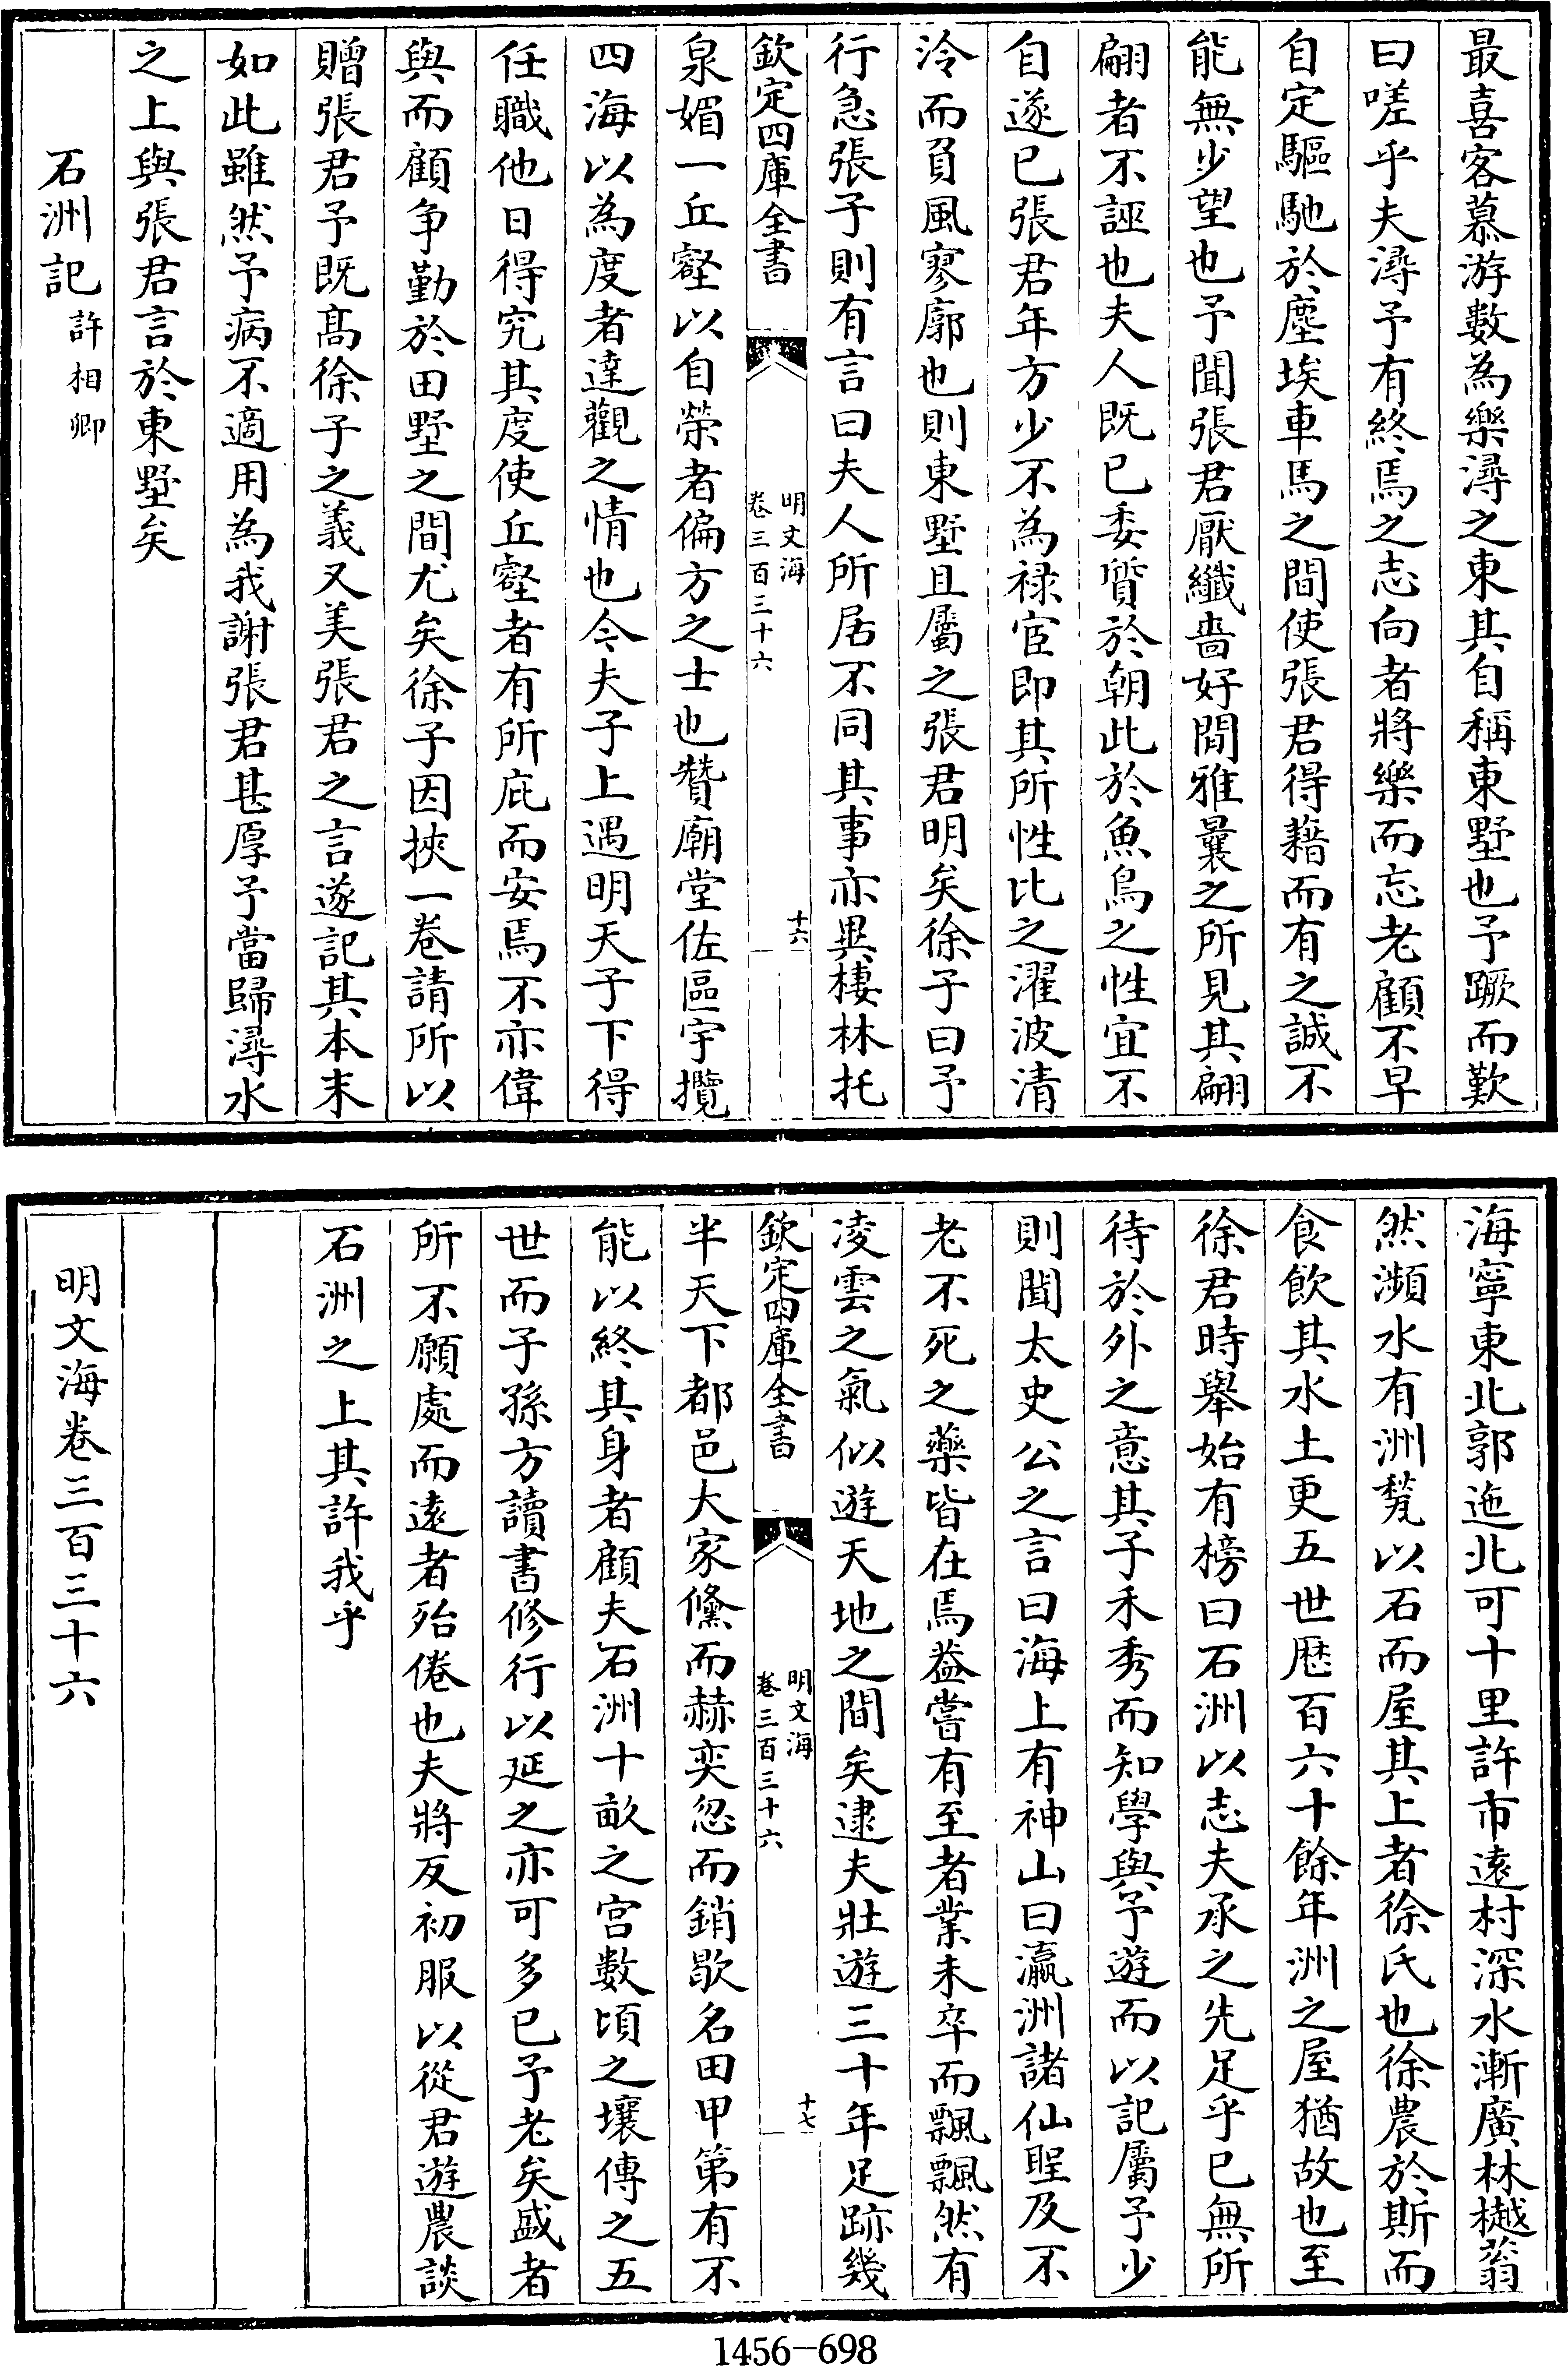 最喜客慕游數為樂潯之東其自稱東墅也予蹶而歎
曰嗟乎夫潯予有終焉之志向者將樂而忘老顧不早
自定驅馳於塵埃車馬之間使張君得藉而有之誠不
能無少望也予聞張君厭纖嗇好閒雅曩之所見其翩
翩者不誣也夫人既已委質於朝此於魚鳥之性宜不
自遂已張君年方少不為禄宦即其所性比之濯波清
泠而負風寥廓也則東墅且屬之張君明矣徐子曰予
行急張子則有言曰夫人所居不同其事亦異棲林托
欽定四庫全書
明文海
卷三百三十六
十六
泉媚一丘壑以自榮者偏方之士也贊廟堂佐區宇攬
四海以為度者達觀之情也今夫子上遇明天子下得
任職他日得究其度使丘壑者有所庇而安焉不亦偉
與而顧争勤於田墅之間尤矣徐子因挾一卷請所以
贈張君予既髙徐子之義又美張君之言遂記其本末
如此雖然予病不適用為我謝張君甚厚予當歸潯水
之上與張君言於東墅矣
石洲記許相卿
海寧東北郭迤北可十里許市逺村深水漸廣林樾蓊
然瀕水有洲甃以石而屋其上者徐氏也徐農於斯而
食飲其水土更五世歴百六十餘年洲之屋猶故也至
徐君時舉始有榜曰石洲以志夫承之先足乎已無所
待於外之意其子禾秀而知學與予遊而以記屬予少
則聞太史公之言曰海上有神山曰瀛洲諸仙聖及不
老不死之藥皆在焉葢嘗有至者業未卒而飄飄然有
凌雲之氣似遊天地之間矣逮夫壯遊三十年足跡幾
欽定四庫全書
明文海
卷三百三十六
十七
半天下都邑大家儵而赫奕忽而銷歇名田甲第有不
能以終其身者顧夫石洲十畝之宫數頃之壤傳之五
世而子孫方讀書修行以延之亦可多已予老矣盛者
所不願處而逺者殆倦也夫將反初服以從君遊農談
石洲之上其許我乎
明文海卷三百三十六
1456-698